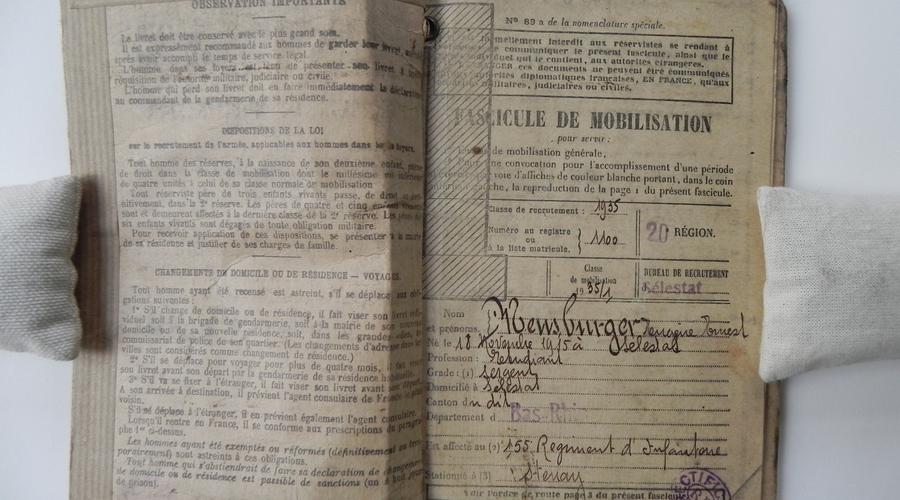 OBSERVATION IMPORTANTE
Le livret doit être conservé avec le plus grand soin.
Il est expressément recommandé aux hommes de garder leur livret,
après avoir accompli le temps de service légal.
L'homme dans ses foyers est tenu de présenter son livret à toute
réquisition de l'autorité militaire, judiciaire ou civile.
L'homme qui perd son livret doit en faire immédiatement la déclaration
au commandant de la gendarmerie de sa résidence.
DISPOSITIONS DE LA LOI
sur le recrutement de l'armée, applicables aux hommes dans les foyers.
Tout homme des réserves, à la naissance de son deuxième enfant, passe
de droit dans la classe de mobilisation dont le millésime est inférieur
de quatre unités à celui de sa classe normale de mobilisation
Tout réserviste père de trois enfants vivants passe, de droit et défi-
nitivement, dans la 2e réserve. Les pères de quatre et cinq enfants
sont et demeurent affectés à la dernière classe de la 2e réserve. Les pères de
six enfants vivants sont dégagés de toute obligation militaire.
Pour recevoir application de ces dispositions, se présenter à la mairie
de sa résidence et justifier de ses charges de famille.
CHANGEMENTS DE DOMICILE OU DE RÉSIDENCE — VOYAGES.
Tout homme ayant été recensé est astreint, s'il se déplace aux obli-
gations suivantes :
1° S'il change de domicile ou de résidence, il fait viser son livret
viduel soit à la brigade de gendarmerie, soit à la mairie de son
domicile ou de sa nouvelle résidence, soit, dans les grandes villes, au
commissariat de police de son quartier. (Les changements d'adresse dans les
villes sont considérés comme changements de résidence.)
2° S'il se déplace pour voyager pour plus de quatre mois, il fait viser
son livret avant son départ par la gendarmerie de sa résidence
3° S'il va se fixer à l'étranger, il fait viser son livret avant son départ.
A son arrivée à destination, il prévient l'agent consulaire de France
voisin.
S'il se déplace à l'étranger, il en prévient également l'agent consulaire.
Lorsqu'il rentre en France, il se conforme aux prescriptions du paragra-
phe 1° ci-dessus.
Les hommes ayant été exemptés ou réformés (définitivement ou tem-
porairement) sont astreints à ces obligations.
Tout homme qui s'abstiendrait de faire sa déclaration de changement
de domicile ou de résidence est passible de sanctions
de prison).
N° 89 a de la nomenclature spéciale.
formellement interdit aux réservistes se rendant à
communiquer le présent fascicule, ainsi que le
qui le contient, aux autorités étrangères.
ces documents ne peuvent être communiqués
autorités diplomatiques françaises, EN FRANCE, qu'aux
militaires, judiciaires ou civiles.
FASCICULE DE MOBILISATION
pour servir :
de mobilisation générale,
une convocation pour l'accomplissement d'une période
voie d'affiches de couleur blanche portant, dans le coin
la reproduction de la page 1 du présent fascicule.
Classe de recrutement : 1935
Numéro au registre
ou
à la liste matricule. } 1100
20 RÉGION.
Classe
de mobilisation
1935/1
BUREAU DE RECRUTEMENT
Sélestat
Nom
et prénoms.
Mensburger Ernest
Né le 18 Novembre 1915 à Sélestat
Profession : Etudiant
Grade : (1) Sergent
Domicilié à Sélestat
Canton du dit
Département d Bas-Rhin
Est affecté au (2) 155 Régiment d'Infanterie
Stationné à (3) Stenay
Voir l'ordre de route page 3 du présent fascicule